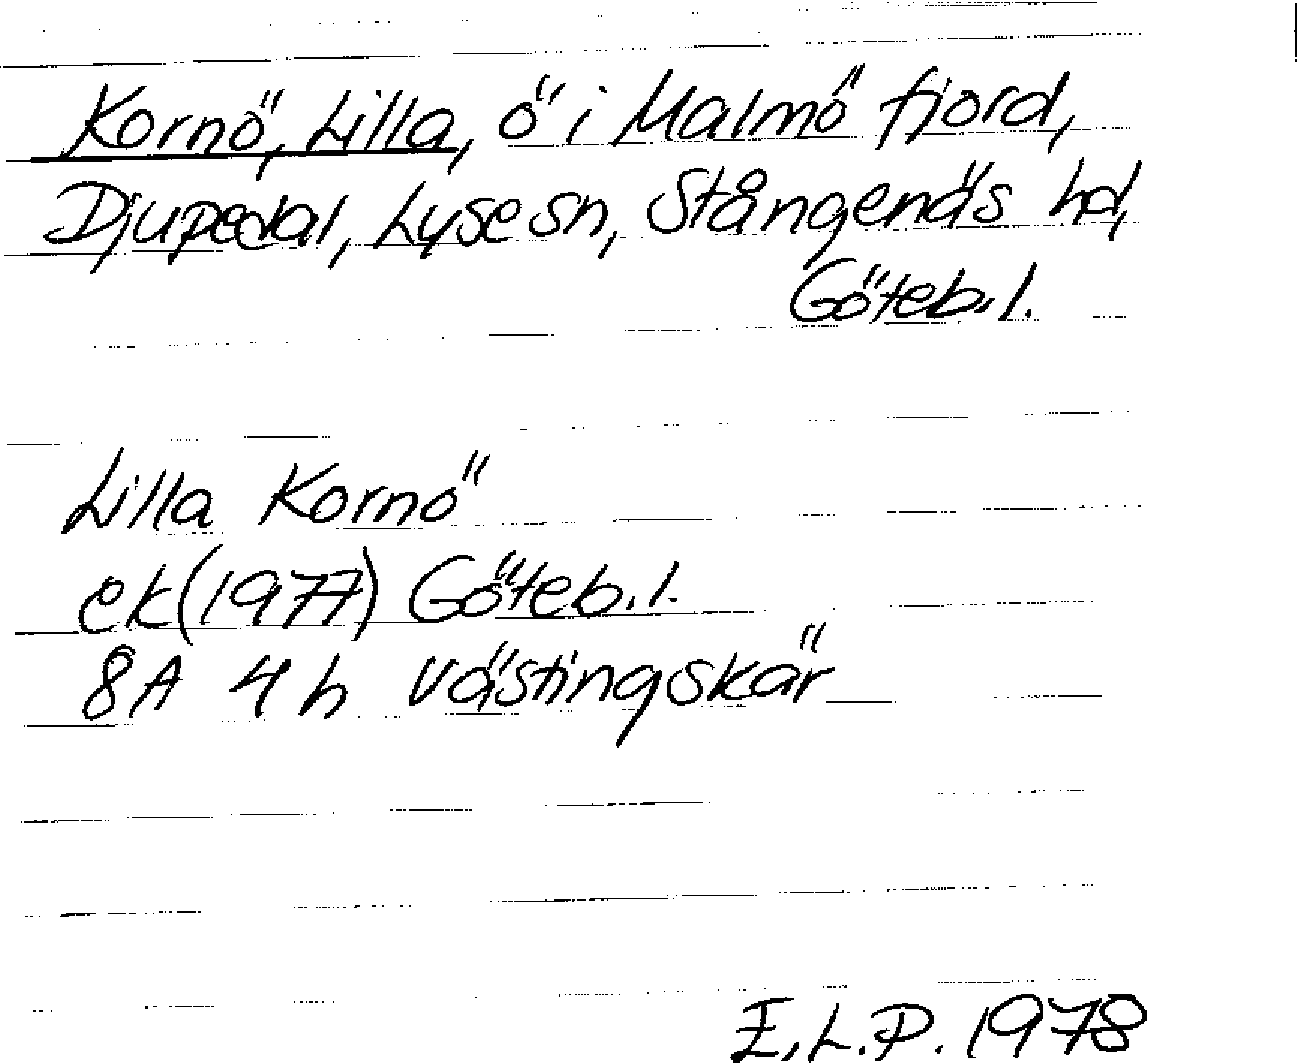 Kornö, Lilla, ö i Malmö fjord,
Djupedal, Lyse sn, Stångenäs hd,
Göteb. l.
Lilla Kornö
ek (1977) Göteb. l.
8A 4h Västingskär
E.L.P. 1978